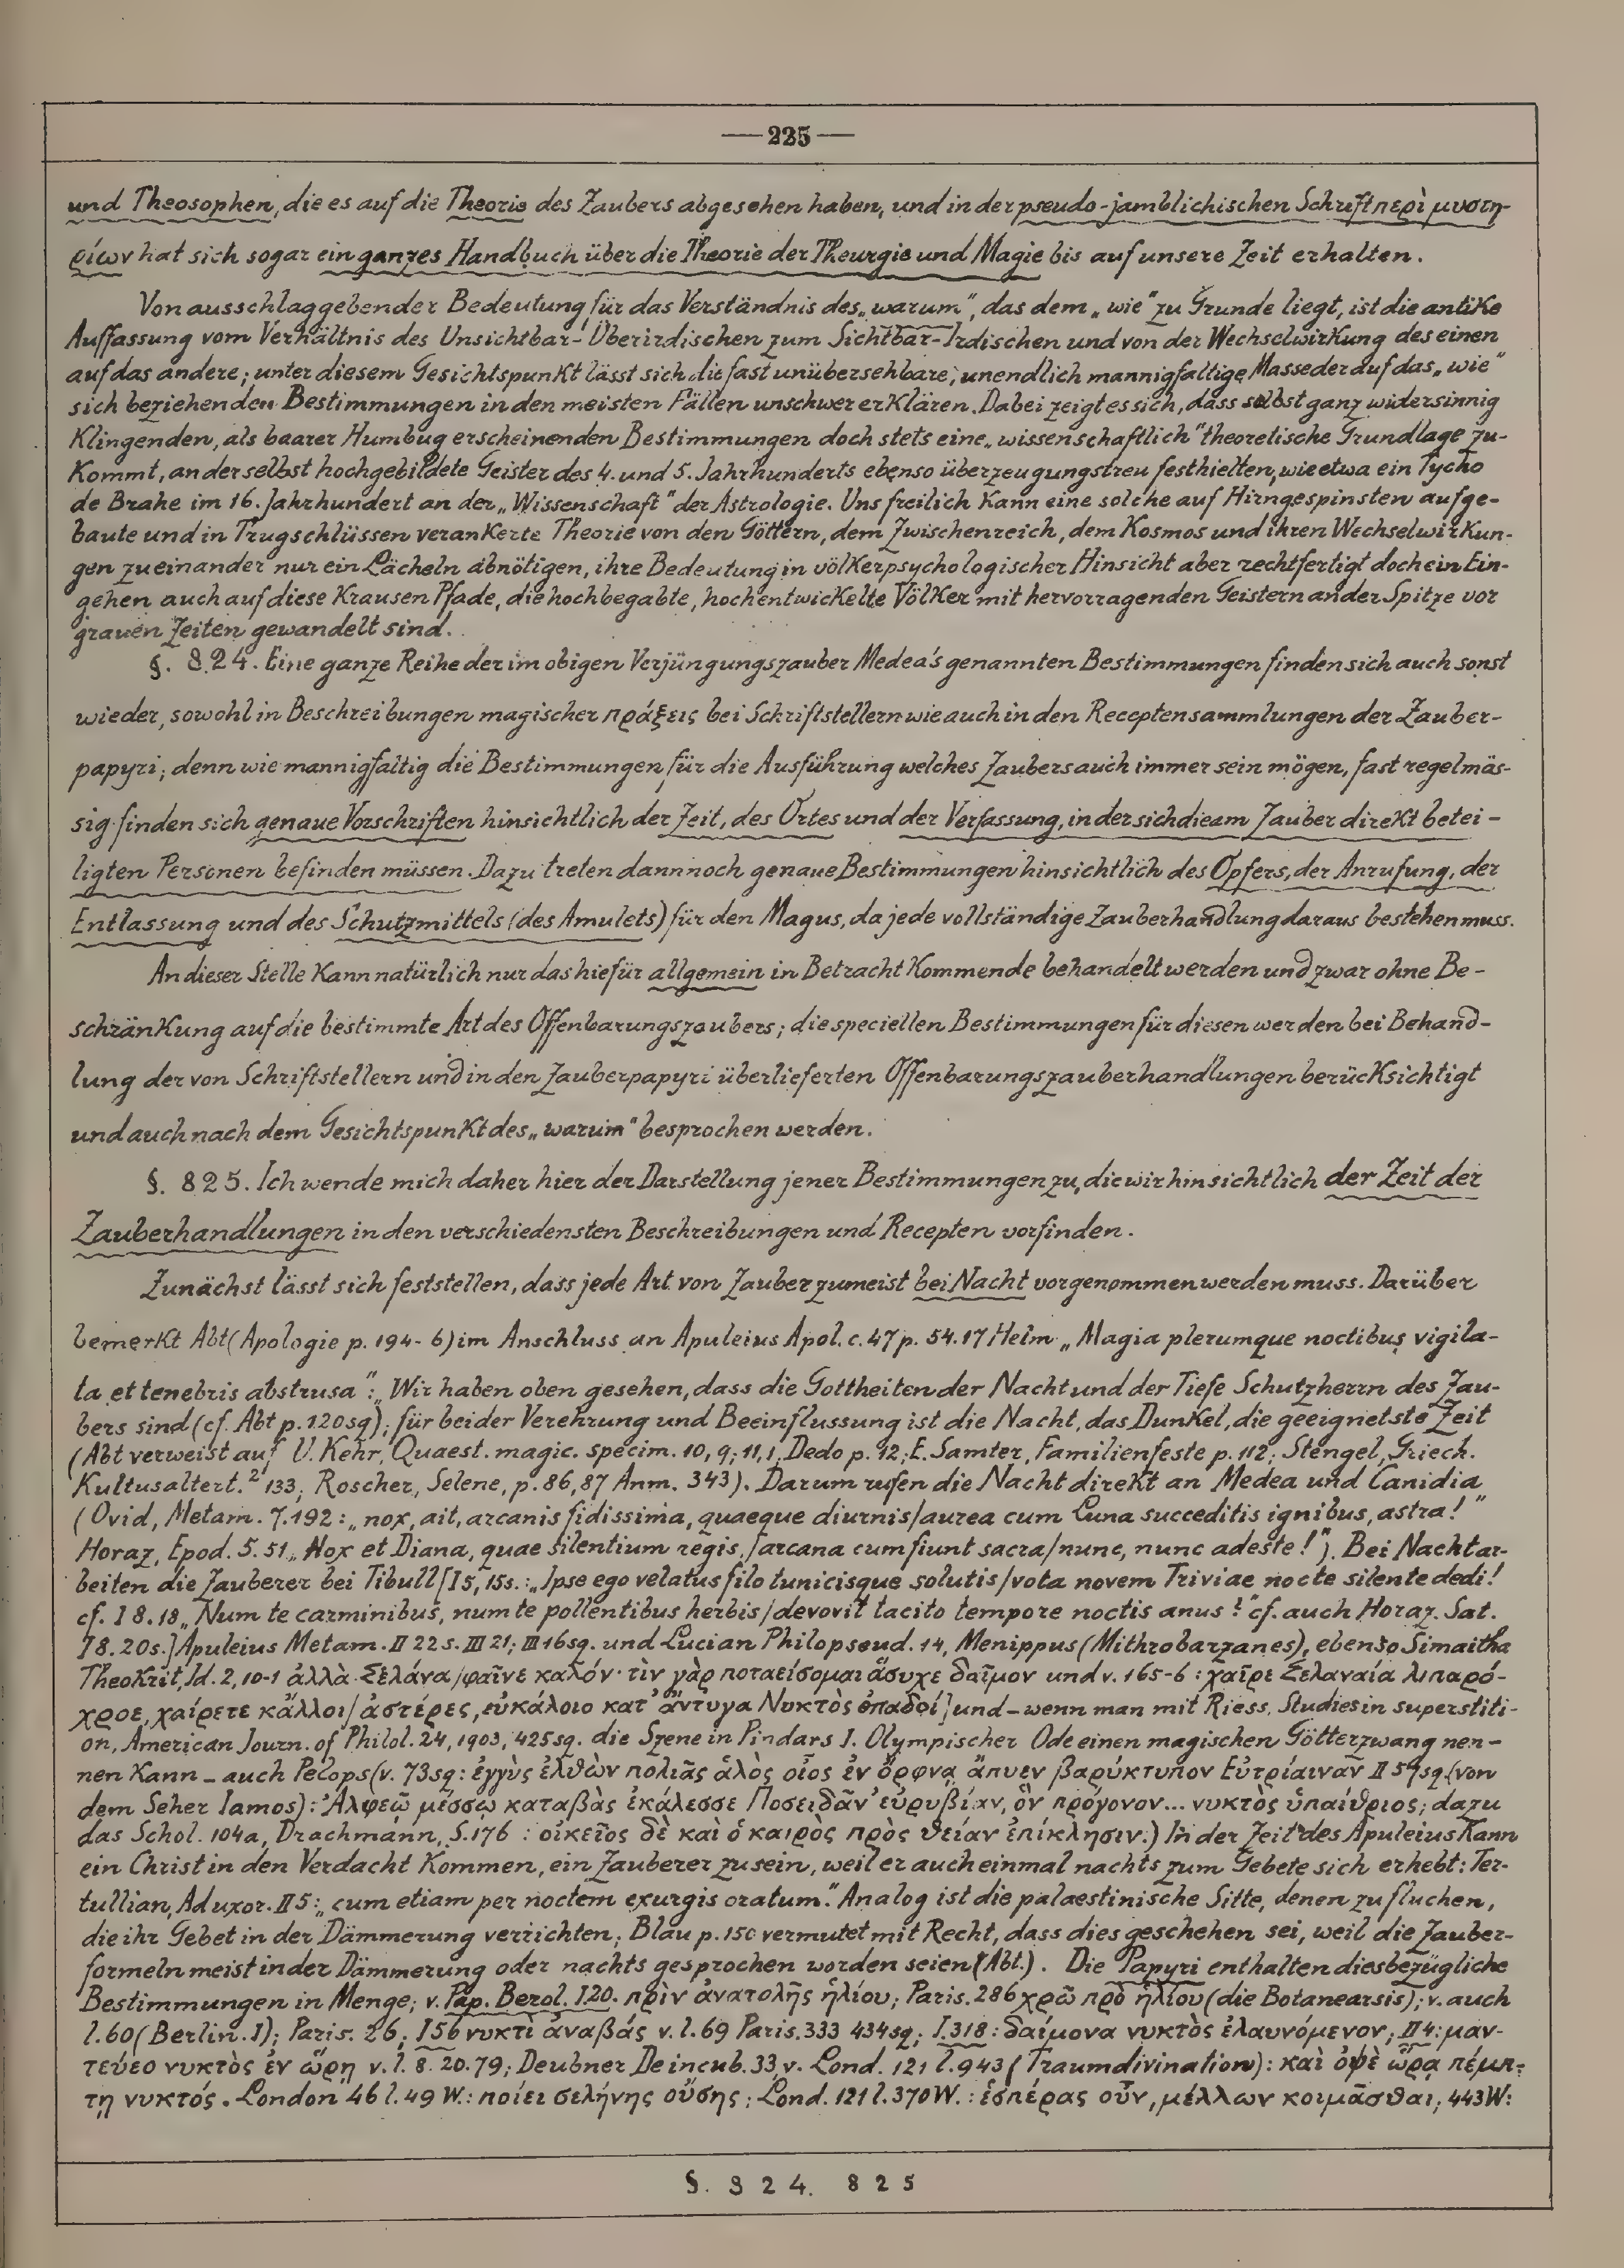 —225—
und Theosophen, die es auf die Theorie des Zaubers abgesehen haben, und in der pseudo-jamblichischen Schrift περὶ μυστη-
ρίων hat sich sogar ein ganzes Handbuch über die Theorie der Theurgie und Magie bis auf unsere Zeit erhalten.
Von ausschlaggebender Bedeutung für das Verständnis des „warum“, das dem „wie“ zu Grunde liegt, ist die antike
Auffassung vom Verhältnis des Unsichtbar-Überirdischen zum Sichtbar-Irdischen und von der Wechselwirkung des einen
auf das andere; unter diesem Gesichtspunkt lässt sich die fast unübersehbare, unendlich mannigfaltige Masse der auf das „wie“
sich beziehenden Bestimmungen in den meisten Fällen unschwer erklären. Dabei zeigt es sich, dass selbst ganz widersinnig
klingenden, als baarer Humbug erscheinenden Bestimmungen doch stets eine „wissenschaftlich“ theoretische Grundlage zu-
kommt, an der selbst hochgebildete Geister des 4. und 5. Jahrhunderts ebenso überzeugungstreu festhielten, wie etwa ein Tycho
de Brahe im 16. Jahrhundert an der „Wissenschaft“ der Astrologie. Uns freilich kann eine solche auf Hirngespinsten aufge-
baute und in Trugschlüssen verankerte Theorie von den Göttern, dem Zwischenreich, dem Kosmos und ihren Wechselwirkun-
gen zueinander nur ein Lächeln abnötigen, ihre Bedeutung in völkerpsychologischer Hinsicht aber rechtfertigt doch ein Ein-
gehen auch auf diese krausen Pfade, die hochbegabte, hochentwickelte Völker mit hervorragenden Geistern an der Spitze vor
grauen Zeiten gewandelt sind.
§. 824. Eine ganze Reihe der im obigen Verjüngungszauber Medea's genannten Bestimmungen finden sich auch sonst
wieder, sowohl in Beschreibungen magischer πράξεις bei Schriftstellern wie auch in den Receptensammlungen der Zauber-
papyri; denn wie mannigfaltig die Bestimmungen für die Ausführung welches Zaubers auch immer sein mögen, fast regelmäs-
sig finden sich genaue Vorschriften hinsichtlich der Zeit, des Ortes und der Verfassung, in der sich die am Zauber direkt betei-
ligten Personen befinden müssen. Dazu treten dann noch genaue Bestimmungen hinsichtlich des Opfers, der Anrufung, der
Entlassung und des Schutzmittels (des Amulets) für den Magus, da jede vollständige Zauberhandlung daraus bestehen muss.
An dieser Stelle kann natürlich nur das hiefür allgemein in Betracht kommende behandelt werden und zwar ohne Be-
schränkung auf die bestimmte Art des Offenbarungszaubers; die speciellen Bestimmungen für diesen werden bei Behand-
lung der von Schriftstellern und in den Zauberpapyri überlieferten Offenbarungszauberhandlungen berücksichtigt
und auch nach dem Gesichtspunkt des „warum“ besprochen werden.
§. 825. Ich wende mich daher hier der Darstellung jener Bestimmungen zu, die wir hinsichtlich der Zeit der
Zauberhandlungen in den verschiedensten Beschreibungen und Recepten vorfinden.
Zunächst lässt sich feststellen, dass jede Art von Zauber zumeist bei Nacht vorgenommen werden muss. Darüber
bemerkt Abt (Apologie p. 194-6) im Anschluss an Apuleius Apol. c. 47 p. 54.17 Helm „Magia plerumque noctibus vigila-
ta et tenebris abstrusa“: „Wir haben oben gesehen, dass die Gottheiten der Nacht und der Tiefe Schutzherrn des Zau-
bers sind (cf. Abt p. 120sq); für beider Verehrung und Beeinflussung ist die Nacht, das Dunkel, die geeignetste Zeit
(Abt verweist auf U. Kehr, Quaest. magic. specim. 10, 9; 11, 1, Dedo p. 12; E. Samter, Familienfeste p. 112; Stengel, Griech.
Kultusaltert.² 133; Roscher, Selene, p. 86, 87 Anm. 343). Darum rufen die Nacht direkt an Medea und Canidia
(Ovid, Metam. 7.192: „nox, ait, arcanis fidissima, quaeque diurnis/aurea cum Luna succeditis ignibus, astra!“
Horaz, Epod. 5. 51 „Nox et Diana, quae silentium regis,/arcana cum fiunt sacra/nunc, nunc adeste!“). Bei Nacht ar-
beiten die Zauberer bei Tibull [I 5, 15s.: „Ipse ego velatus filo tunicisque solutis/vota novem Triviae nocte silente dedi!
cf. I 8. 18 „Num te carminibus, num te pollentibus herbis/devovit tacito tempore noctis anus?“ cf. auch Horaz. Sat.
I 8. 20s.] Apuleius Metam. II 22 s. III 21; III 16sq. und Lucian Philopseud. 14, Menippus (Mithrobarzanes), ebenso Simaitha
Theokrit, Id. 2, 10-1 ἀλλὰ Σελάνα/φαῖνε καλόν· τὶν γὰρ ποταείσομαι ἅσυχε δαῖμον und v. 165-6: χαῖρε Σελαναία λιπαρό-
χροε, χαίρετε κἄλλοι/ἀστέρες, εὐκάλοιο κατ' ἄντυγα Νυκτὸς ὀπαδοί] und – wenn man mit Riess, Studies in superstiti-
on, American Journ. of Philol. 24, 1903, 425sq. die Szene in Pindars I. Olympischer Ode einen magischen Götterzwang nen-
nen kann – auch Pelops (v. 73sq: ἐγγὺς ἐλθὼν πολιᾶς ἁλὸς οἶος ἐν ὄρφνᾳ ἄπυεν βαρύκτυπον Εὐτρίαιναν II 59sq. (von
dem Seher Iamos): Ἀλφεῶ μέσσῳ καταβὰς ἐκάλεσσε Ποσειδᾶν' εὐρυβίαν, ὃν πρόγονον... νυκτὸς ὑπαίθριος; dazu
das Schol. 104a, Drachmann, S. 176 : οἰκεῖος δὲ καὶ ὁ καιρὸς πρὸς θείαν ἐπίκλησιν.) In der Zeit des Apuleius kann
ein Christ in den Verdacht kommen, ein Zauberer zu sein, weil er auch einmal nachts zum Gebete sich erhebt: Ter-
tullian, Ad uxor. II 5: „cum etiam per noctem exurgis oratum.“ Analog ist die palaestinische Sitte, denen zu fluchen,
die ihr Gebet in der Dämmerung verrichten; Blau p. 150 vermutet mit Recht, dass dies geschehen sei, weil die Zauber-
formeln meist in der Dämmerung oder nachts gesprochen worden seien (Abt). Die Papyri enthalten diesbezügliche
Bestimmungen in Menge; v. Pap. Berol. I 20. πρὶν ἀνατολῆς ἡλίου; Paris. 286 χρῶ πρὸ ἡλίου (die Botanearsis); v. auch
l. 60 (Berlin. I); Paris. 26; I 56 νυκτὶ ἀναβάς v. l. 69 Paris. 333 434sq; I. 318: δαίμονα νυκτὸς ἐλαυνόμενον; II 4: μαν-
τεύεο νυκτὸς ἐν ὥρῃ v. l. 8. 20. 79; Deubner De incub. 33, v. Lond. 121 l. 943 (Traumdivination): καὶ ὀψὲ ὥρᾳ πέμπ-
τῃ νυκτός. London 46 l. 49 W.: ποίει σελήνης οὔσης; Lond. 121 l. 370 W.: ἑσπέρας οὖν, μέλλων κοιμᾶσθαι; 443 W:
§. 824. 825